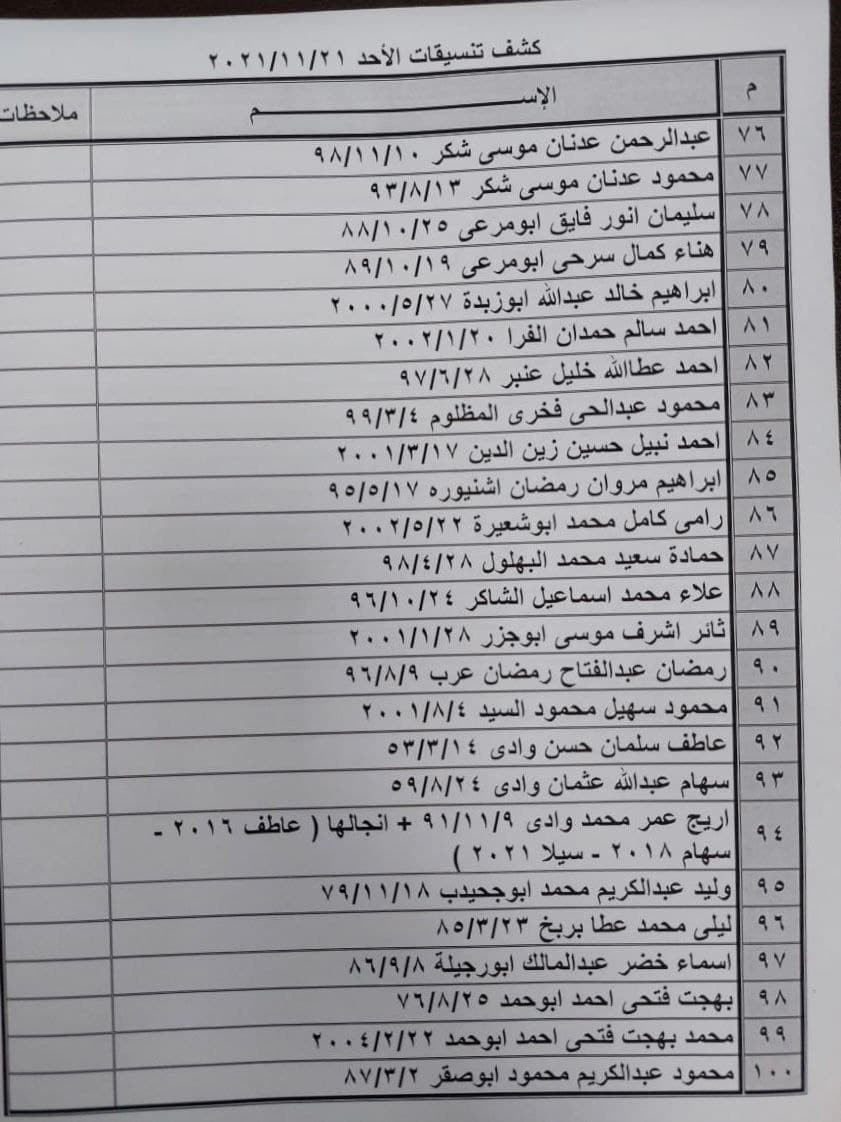 كشف تنسيقات الأحد ٢٠٢١/١١/٢١
م الإســـــــــم ملاحظات
٧٦ عبدالرحمن عدنان موسى شكر ٩٨/١١/١٠
٧٧ محمود عدنان موسى شكر ٩٣/٨/١٣
٧٨ سليمان انور فايق ابومرعى ٨٨/١٠/٢٥
٧٩ هناء كمال سرحى ابومرعى ٨٩/١٠/١٩
٨٠ ابراهيم خالد عبدالله ابوزبدة ٢٠٠٠/٥/٢٧
٨١ احمد سالم حمدان الفرا ٢٠٠٢/١/٢٠
٨٢ احمد عطاالله خليل عنبر ٩٧/٦/٢٨
٨٣ محمود عبدالحى فخرى المظلوم ٩٩/٣/٤
٨٤ احمد نبيل حسين زين الدين ٢٠٠١/٣/١٧
٨٥ ابراهيم مروان رمضان اشنيوره ٩٥/٥/١٧
٨٦ رامى كامل محمد ابوشعيرة ٢٠٠٢/٥/٢٢
٨٧ حمادة سعيد محمد البهلول ٩٨/٤/٢٨
٨٨ علاء محمد اسماعيل الشاكر ٩٦/١٠/٢٤
٨٩ ثائر اشرف موسى ابوجزر ٢٠٠١/١/٢٨
٩٠ رمضان عبدالفتاح رمضان عرب ٩٦/٨/٩
٩١ محمود سهيل محمود السيد ٢٠٠١/٨/٤
٩٢ عاطف سلمان حسن وادى ٥٣/٣/١٤
٩٣ سهام عبدالله عثمان وادى ٥٩/٨/٢٤
٩٤ اريج عمر محمد وادى ٩١/١١/٩ + انجالها ( عاطف ٢٠١٦ -
سهام ٢٠١٨ - سيلا ٢٠٢١ )
٩٥ وليد عبدالكريم محمد ابوجحيدب ٧٩/١١/١٨
٩٦ ليلى محمد عطا بربخ ٨٥/٣/٢٣
٩٧ اسماء خضر عبدالمالك ابورجيلة ٨٦/٩/٨
٩٨ بهجت فتحى احمد ابوحمد ٧٦/٨/٢٥
٩٩ محمد بهجت فتحى احمد ابوحمد ٢٠٠٤/٢/٢٢
١٠٠ محمود عبدالكريم محمود ابوصقر ٨٧/٣/٢